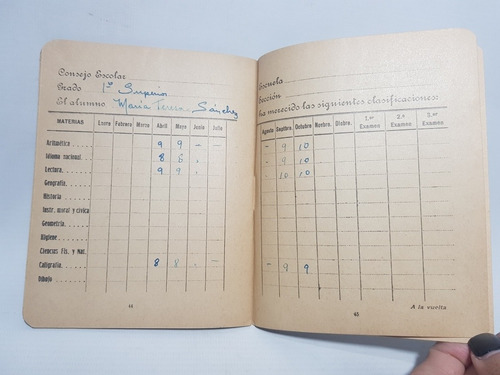 Consejo Escolar
Grado 1º Superior
El alumno María Teresa Sánchez
MATERIAS Enero Febrero Marzo Abril Mayo Junio Julio
Aritmética 9 9 - -
Idioma nacional. 8 8
Lectura. 9 9
Geografía.
Historia
Instr. moral y cívica
Geometría.
Higiene
Ciencias Fís. y Nat.
Caligrafía. 8 8 -
Dibujo.
44
Escuela
Sección
ha merecido las siguientes clasificaciones:
Agosto Septbre. Octubre Novbre. Dicbre. 1.er Examen 2.º Examen 3.er Examen
- 9 10
- 9 10
- 10 10
- 9 9
45
A la vuelta